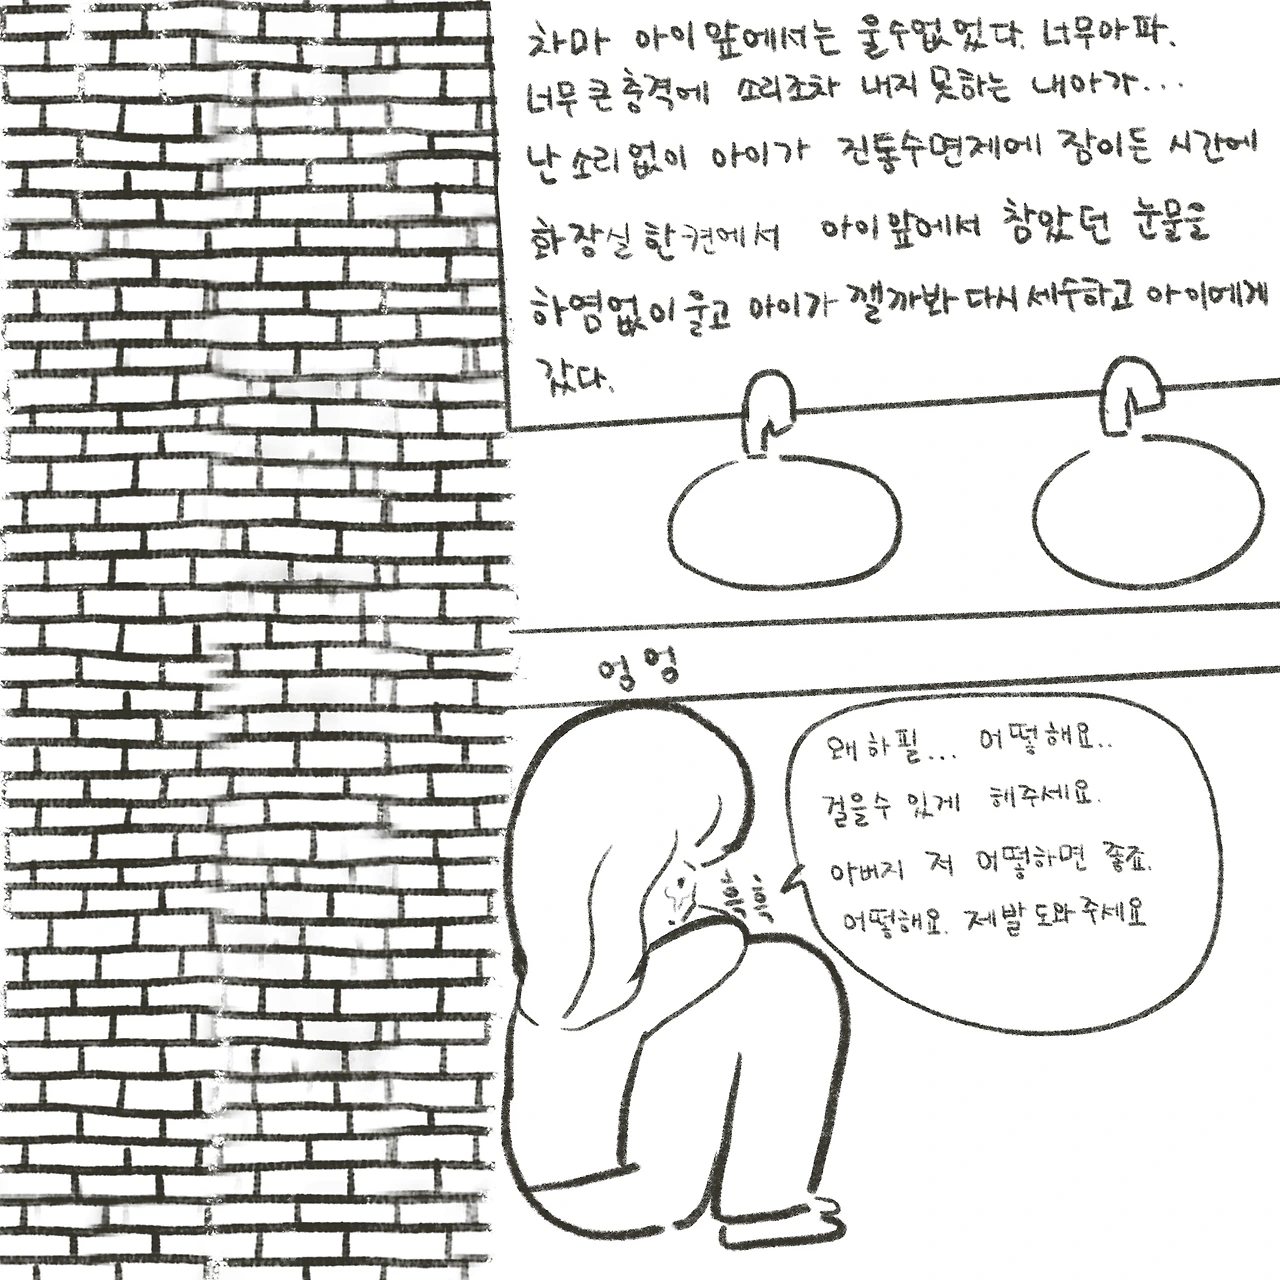 차마 아이 앞에서는 울수없었다. 너무아파.
너무 큰 충격에 소리조차 내지 못하는 내아가...
난 소리없이 아이가 진통수면제에 잠이든 시간에
화장실 한켠에서 아이앞에서 참았던 눈물을
하염없이 울고 아이가 깰까봐 다시 세수하고 아이에게
갔다.
엉엉
왜 하필... 어떻해요..
걸을수 있게 해주세요.
흑흑
아버지 저 어떻하면 좋죠.
어떻해요. 제발 도와주세요